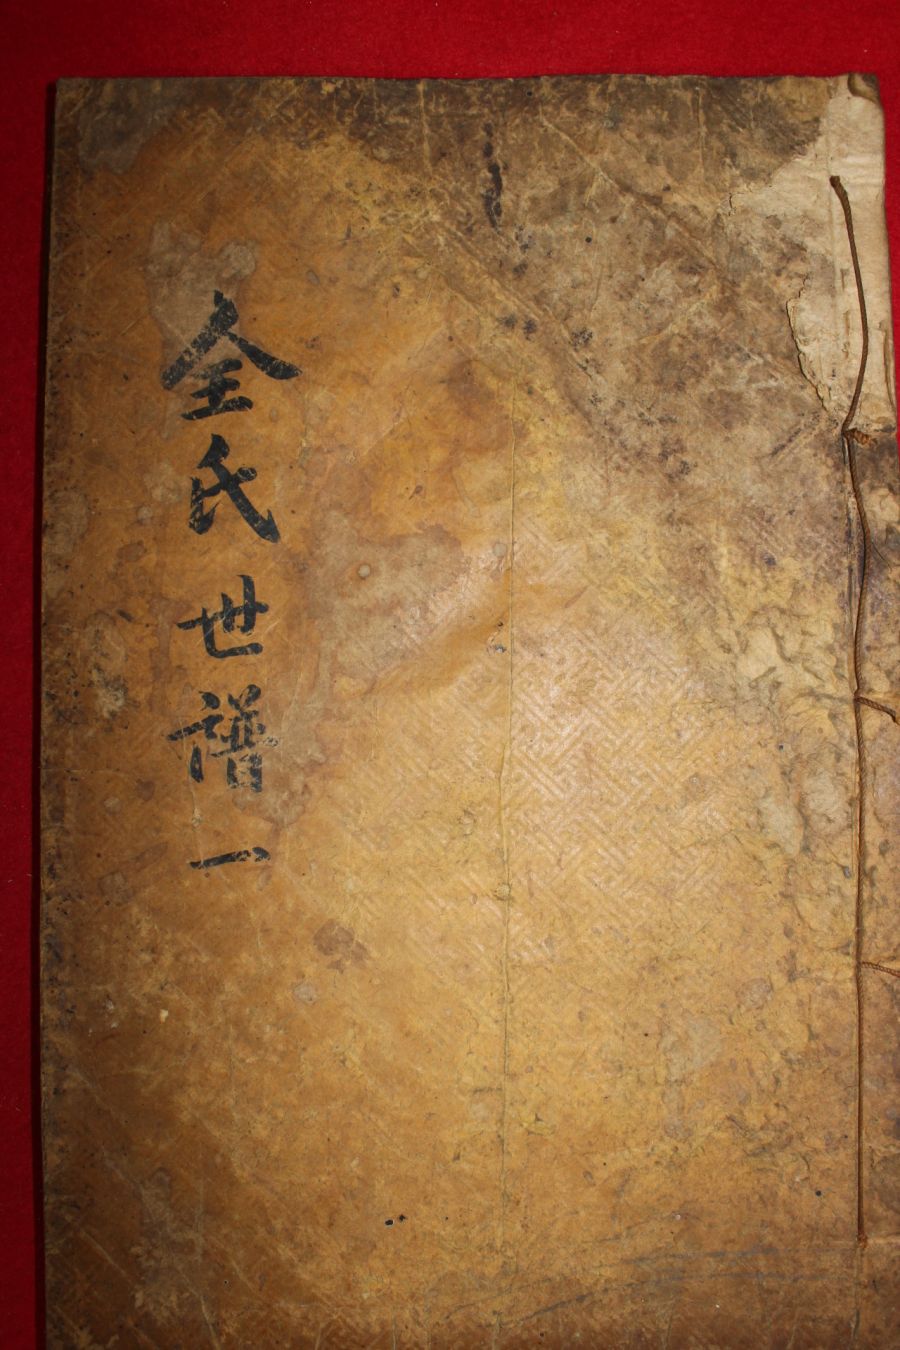 全氏世譜 一